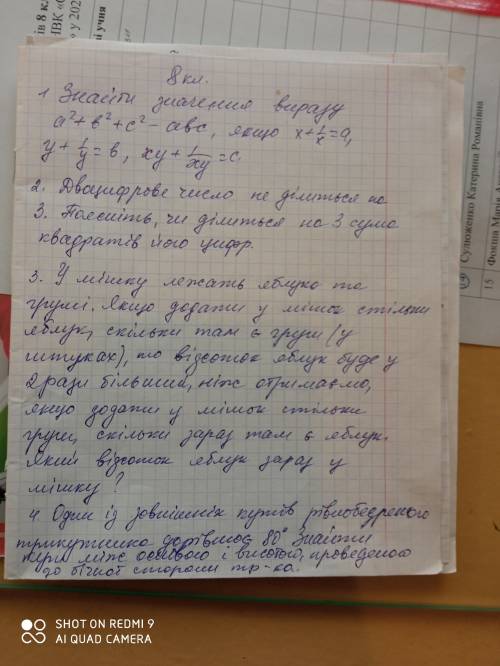 8 кл.
1 Знайти значення виразу
a² + в² + c² - авс, якщо x + 1/x = a,
y + 1/y = в, xy + 1/xy = c.
2. Двоцифрове число не ділиться на
3. Поясніть, чи ділиться на 3 сума
квадратів його цифр.
3. У мішку лежать яблука та
груші. Якщо додати у мішок стільки
яблук, скільки там є груш (у
штуках), то відсоток яблук буде у
2 рази більший, ніж отримаємо,
якщо додати у мішок стільки
груш, скільки зараз там є яблук.
Який відсоток яблук зараз у
мішку?
4. Один із зовнішніх кутів рівнобедреного
трикутника дорівнює 80° Знайти
кути між основою і висотою, проведеною
до бічної сторони тр-ка.
ів 8 кл
НВК «
у 202
ні учня
14 Сулюженко Катерина Романівна
15 Фокша Марія
SHOT ON REDMI 9
AI QUAD CAMERA